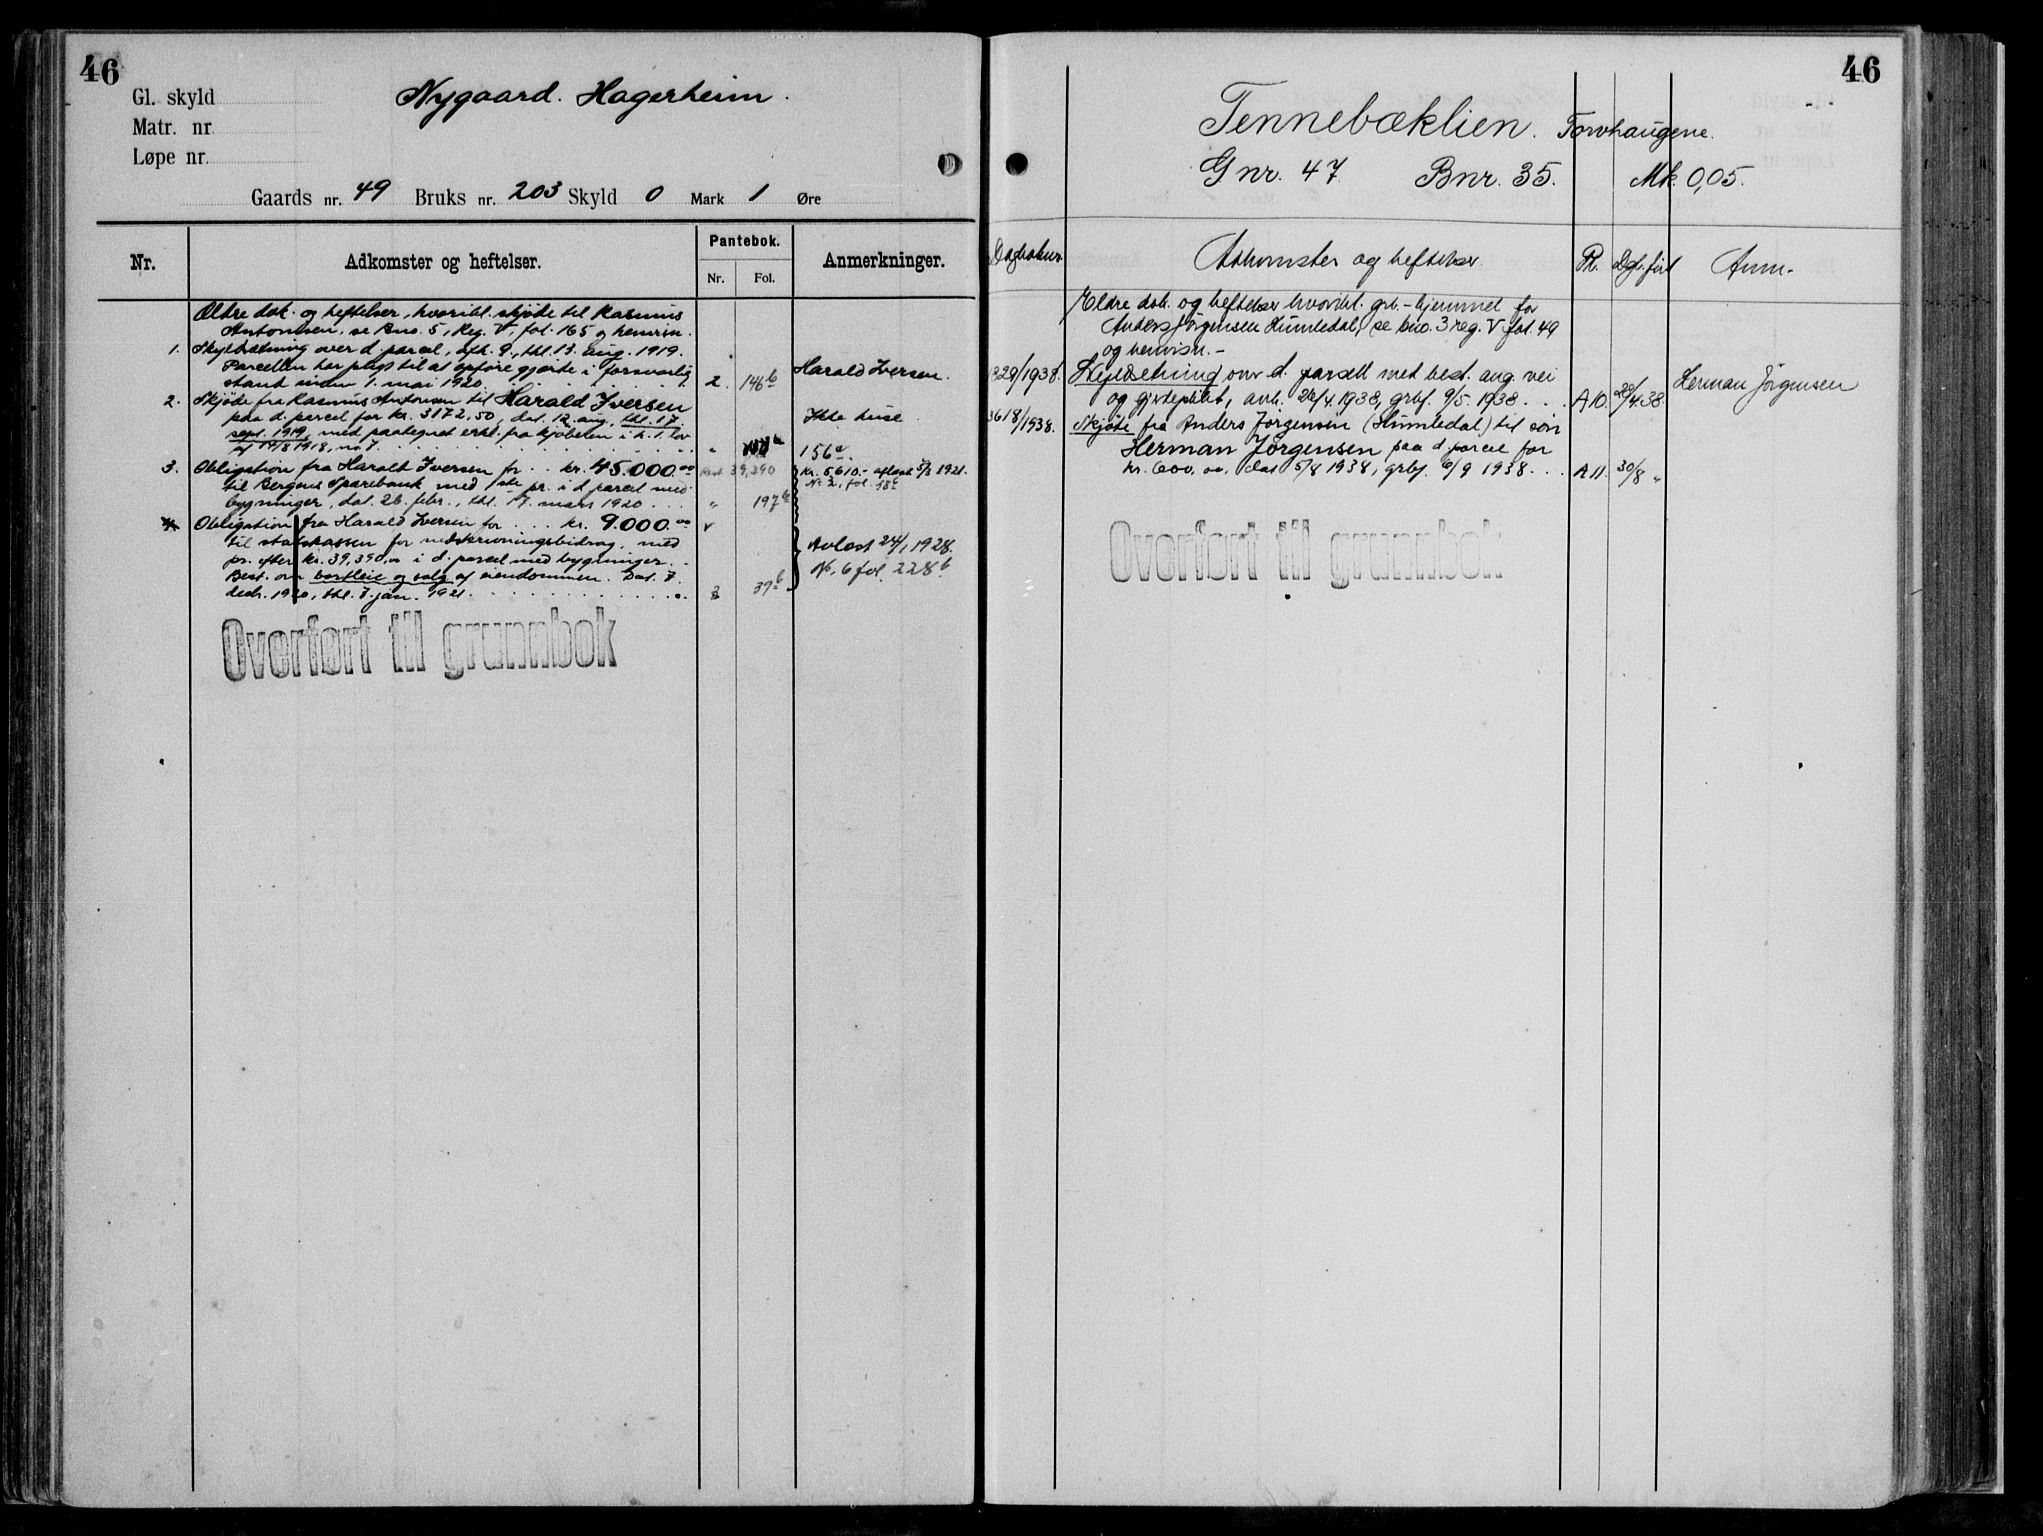 46
Gl. skyld
Matr. nr.
Løpe nr.
Nygaard. Hagerheim.
Gaards nr. 49 Bruks nr. 203 Skyld 0 Mark 1 Øre
Nr. Adkomster og heftelser. Pantebok. Nr. Fol. Anmerkninger.
Ældre dok. og heftelser, hvoribl. skjøde til Rasmus
Antonsen, se Bno. 5, Reg. V, fol. 165 og henvisn.
1. Skyldsetning over d. parcel, afh. 9., thl. 13. aug. 1919.
Parcellen har pligt til at opføre gjærde i forsvarlig
stand inden 1. mai 1920. 2. 146 b Harald Iversen.
2. Skjøde fra Rasmus Antonsen til Harald Iversen
paa d. parcel for kr. 3172,50, dat. 12. aug., thl. 17
sept. 1919, med paategnet erkl. fra kjøberen i h. t. lov
af 14/8 1918, no 7. " 156 a. Ikke huse
3. Obligation fra Harald Iversen for kr. 45.000.00 Rest 39,390 kr. 5610.- aflæst 5/3 1921.
til Bergens Sparebank med 1ste pr. i d. parcel med No 2, fol. 58 a
bygninger, dat. 26. febr., thl. 17. mars 1920 " 197 b
4. Obligation fra Harald Iversen for kr. 9.000.00
til statskassen for nedskrivningsbidrag, med
pr. efter kr. 39,390,00 i d. parcel med bygninger.
Best. om bortleie og salg af eiendommen. Dat. 7.
decbr. 1920, thl. 7. jan. 1921. 3 39 b
Avlæst 24/1 1928.
No. 6 fol. 228 b
Overført til grunnbok
46
Tennebæklien. Torvhaugene.
Gnr. 47. Bnr. 35. Mk. 0,05.
Dagboknr. Adkomster og heftelser. Pb. Dagb.ført Anm.
Eldre dok. og heftelser hvoribl. grb.-hjemmel for
Anders Jørgensen Humledal, se bno. 3 reg. V fol. 49
og henvisn.-
1829/1938. Skyldsetning over d. parsell med best. ang. vei
og gjerdeplikt, avh. 26/4 1938, grbf. 9/5. 1938. A 10. 28/4.38. Herman Jörgensen
3618/1938. Skjøte fra Anders Jörgensen (Humledal) til sön
Herman Jörgensen paa d. parcel for
kr. 600,00, dat. 5/8 1938, grbf. 6/9 1938. A 11. 30/8 "
Overført til grunnbok